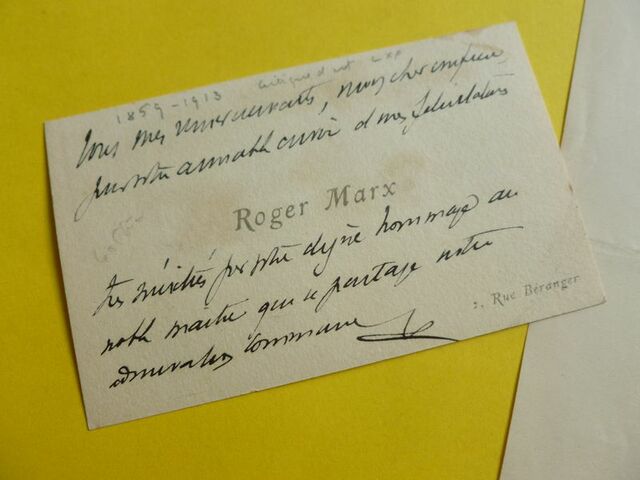 1859-1913 critique d'art
Tous mes remerciements, mon cher confrère
pour votre aimable envoi et mes félicitations
Roger Marx
très méritées pour votre digne hommage au
noble maître que se partage notre
admiration commune
2, Rue Béranger